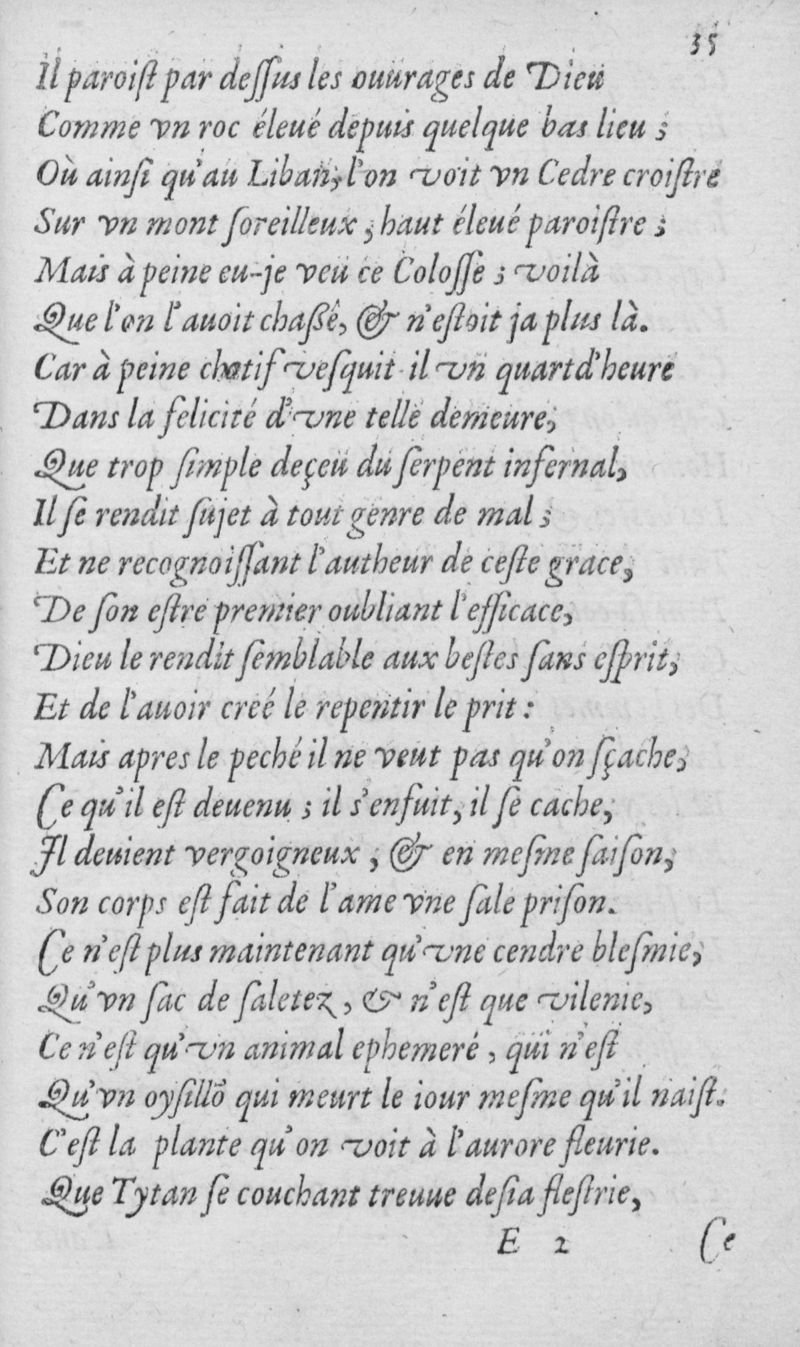 35
Il paroiſt par deſſus les ouurages de Dieu
Comme vn roc éleué depuis quelque bas lieu ;
Où ainſi qu'au Liban, l'on voit vn Cedre croiſtre
Sur vn mont ſoreilleux ; haut éleué paroiſtre ;
Mais à peine eu-je veu ce Coloſſe ; voilà
Que l'on l'auoit chaßé, & n'eſtoit ja plus là.
Car à peine chetif veſquit il vn quart d'heure
Dans la felicité d'vne telle demeure,
Que trop ſimple deçeu du ſerpent infernal,
Il ſe rendit ſujet à tout genre de mal ;
Et ne recognoiſſant l'autheur de ceſte grace,
De ſon eſtre premier oubliant l'efficace,
Dieu le rendit ſemblable aux beſtes ſans eſprit,
Et de l'auoir creé le repentir le prit :
Mais apres le peché il ne veut pas qu'on ſçache,
Ce qu'il eſt deuenu ; il s'enfuit, il ſe cache,
Il deuient vergoigneux ; & en meſme ſaiſon,
Son corps eſt fait de l'ame vne ſale priſon.
Ce n'eſt plus maintenant qu'vne cendre bleſmie,
Qu'vn ſac de ſaletez, & n'eſt que vilenie,
Ce n'eſt qu'vn animal ephemeré, qui n'eſt
Qu'vn oyſillõ qui meurt le iour meſme qu'il naiſt.
C'eſt la plante qu'on voit à l'aurore fleurie.
Que Tytan ſe couchant treuue deſia fleſtrie,
E 2 Ce